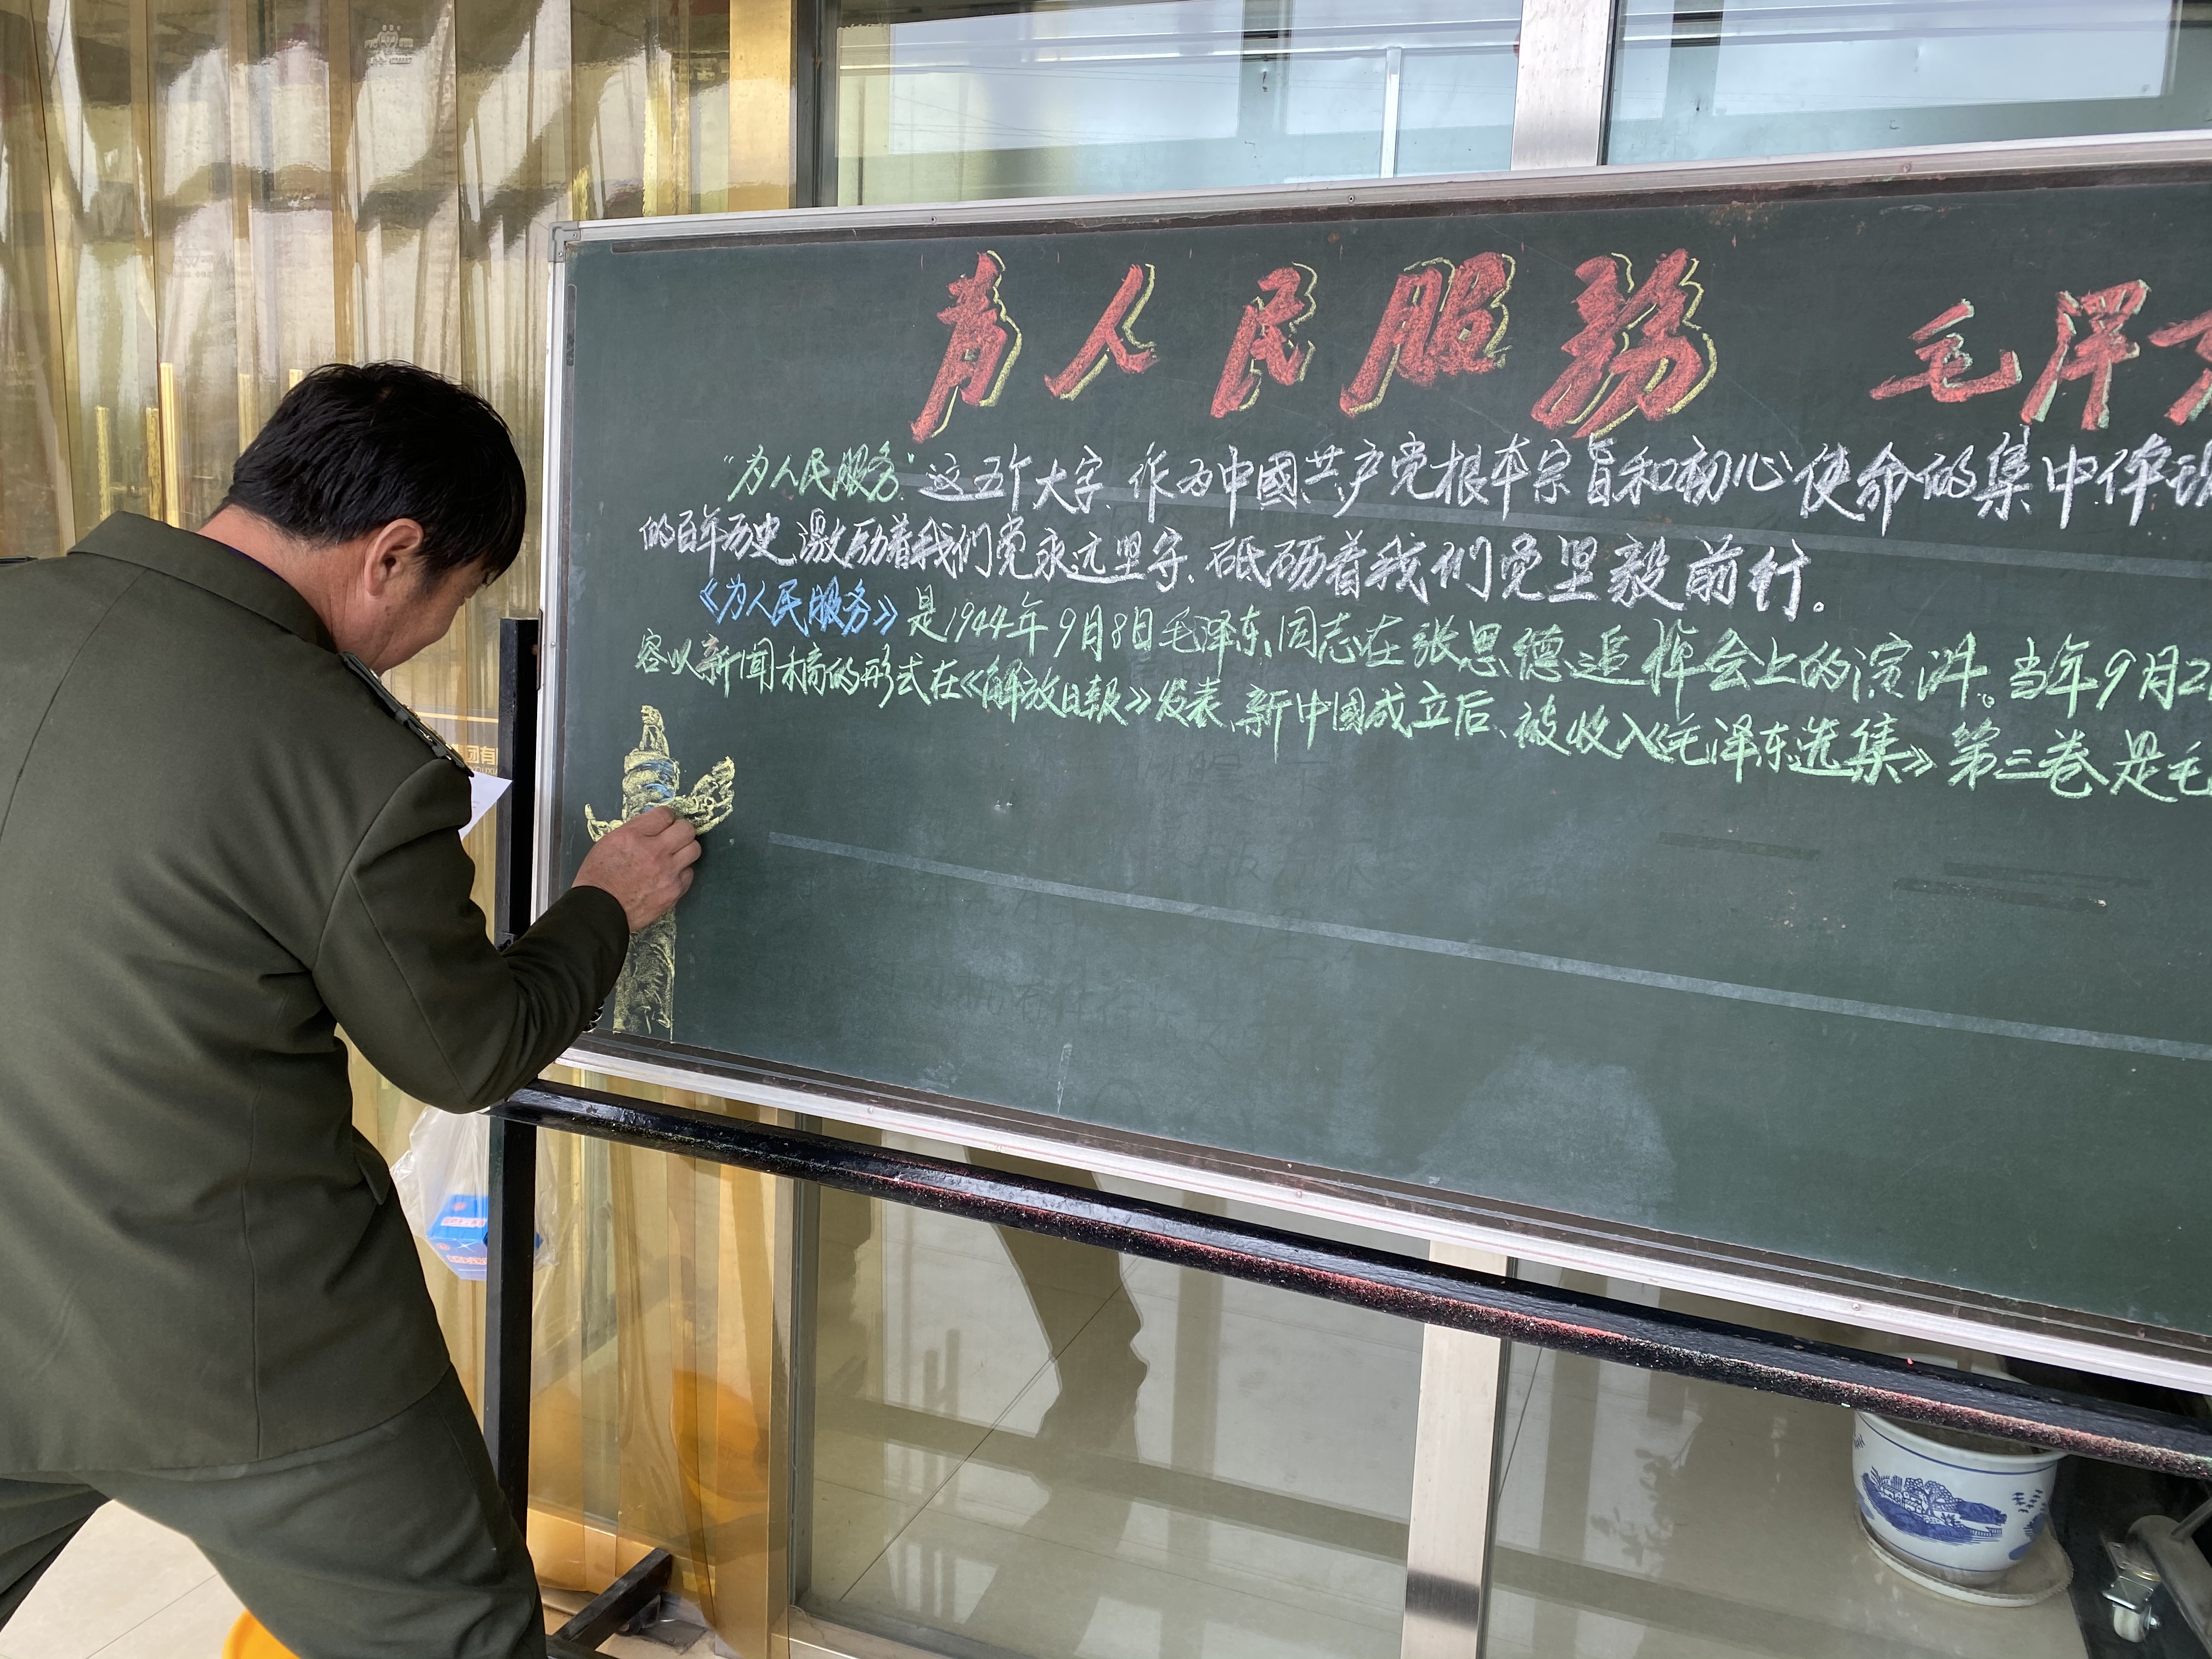 為人民服務 毛澤东
“为人民服务”这五个大字、作为中國共产党根本宗旨和初心使命的集中体现
的百年历史,激励着我们党永远坚守、砥砺着我们党坚毅前行。
《为人民服务》是1944年9月8日毛泽东同志在张思德追悼会上的演讲。当年9月2
容以新闻稿的形式在《解放日報》发表、新中國成立后、被收入《毛泽东选集》第三卷是毛